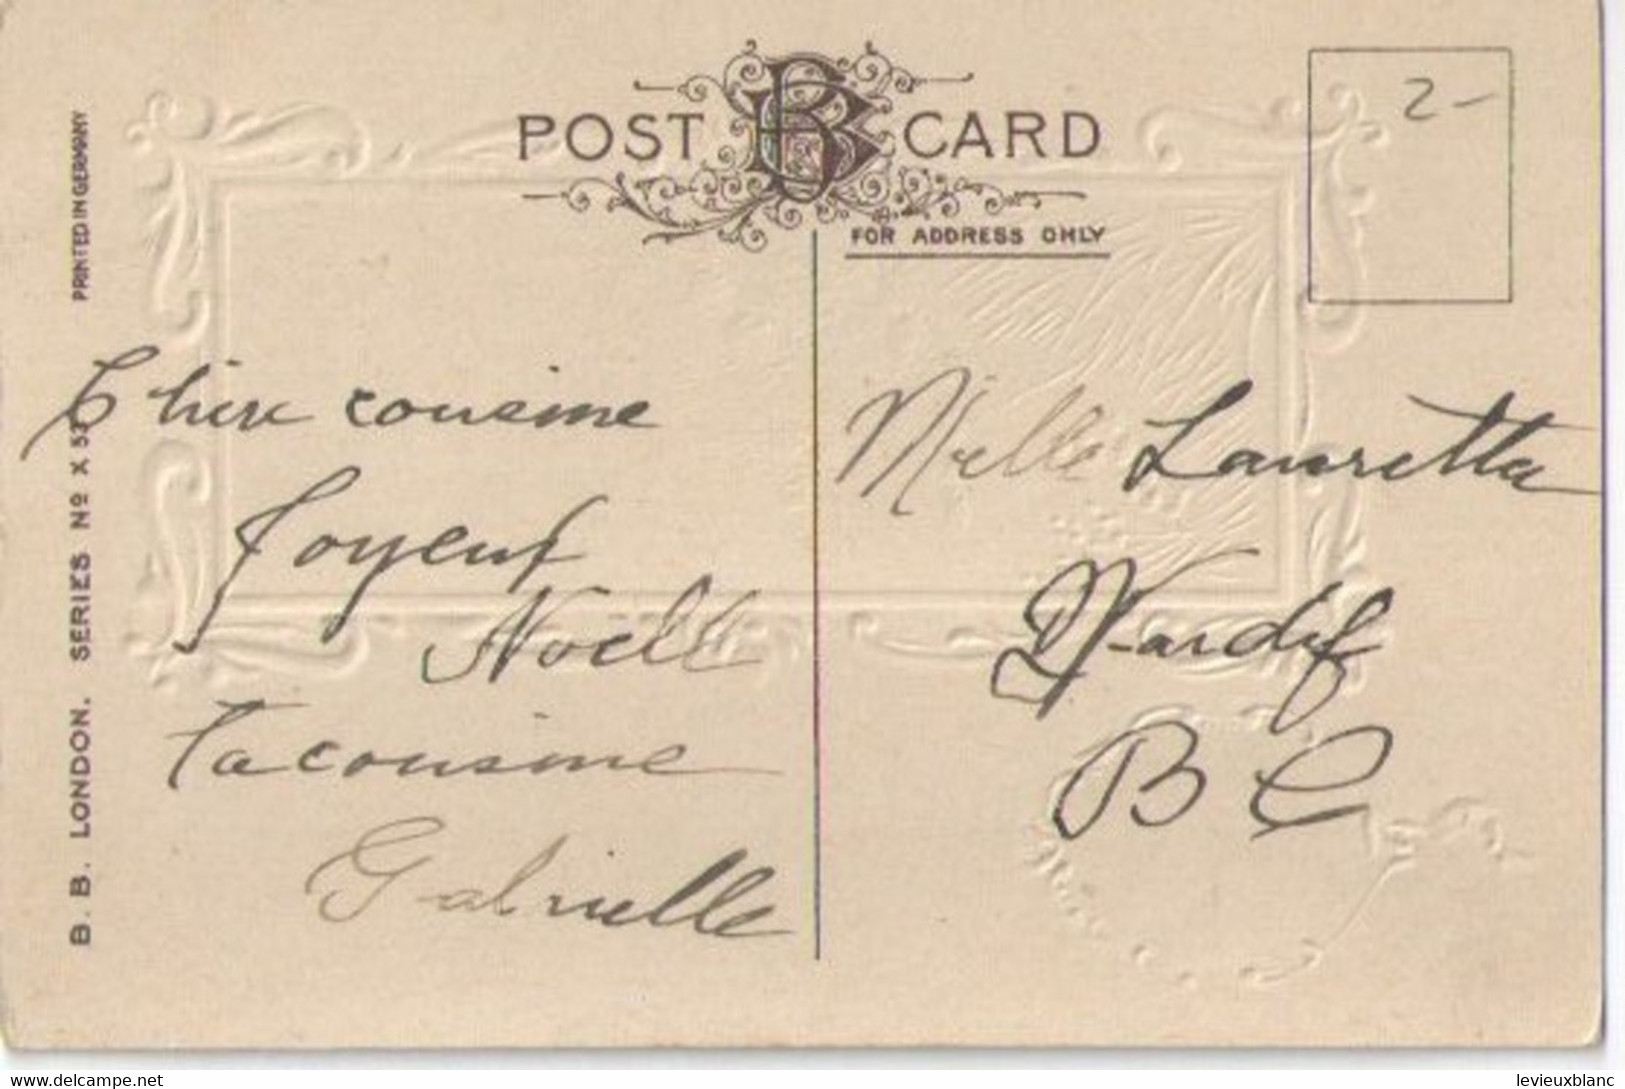 POST CARD
FOR ADDRESS ONLY
2-
PRINTED IN GERMANY
B. B. LONDON. SERIES Nº X 53
Chère cousine
Joyeux
Noëll
Ta cousine
Gabrielle
Melle Lauretta
B C
levieuxblanc